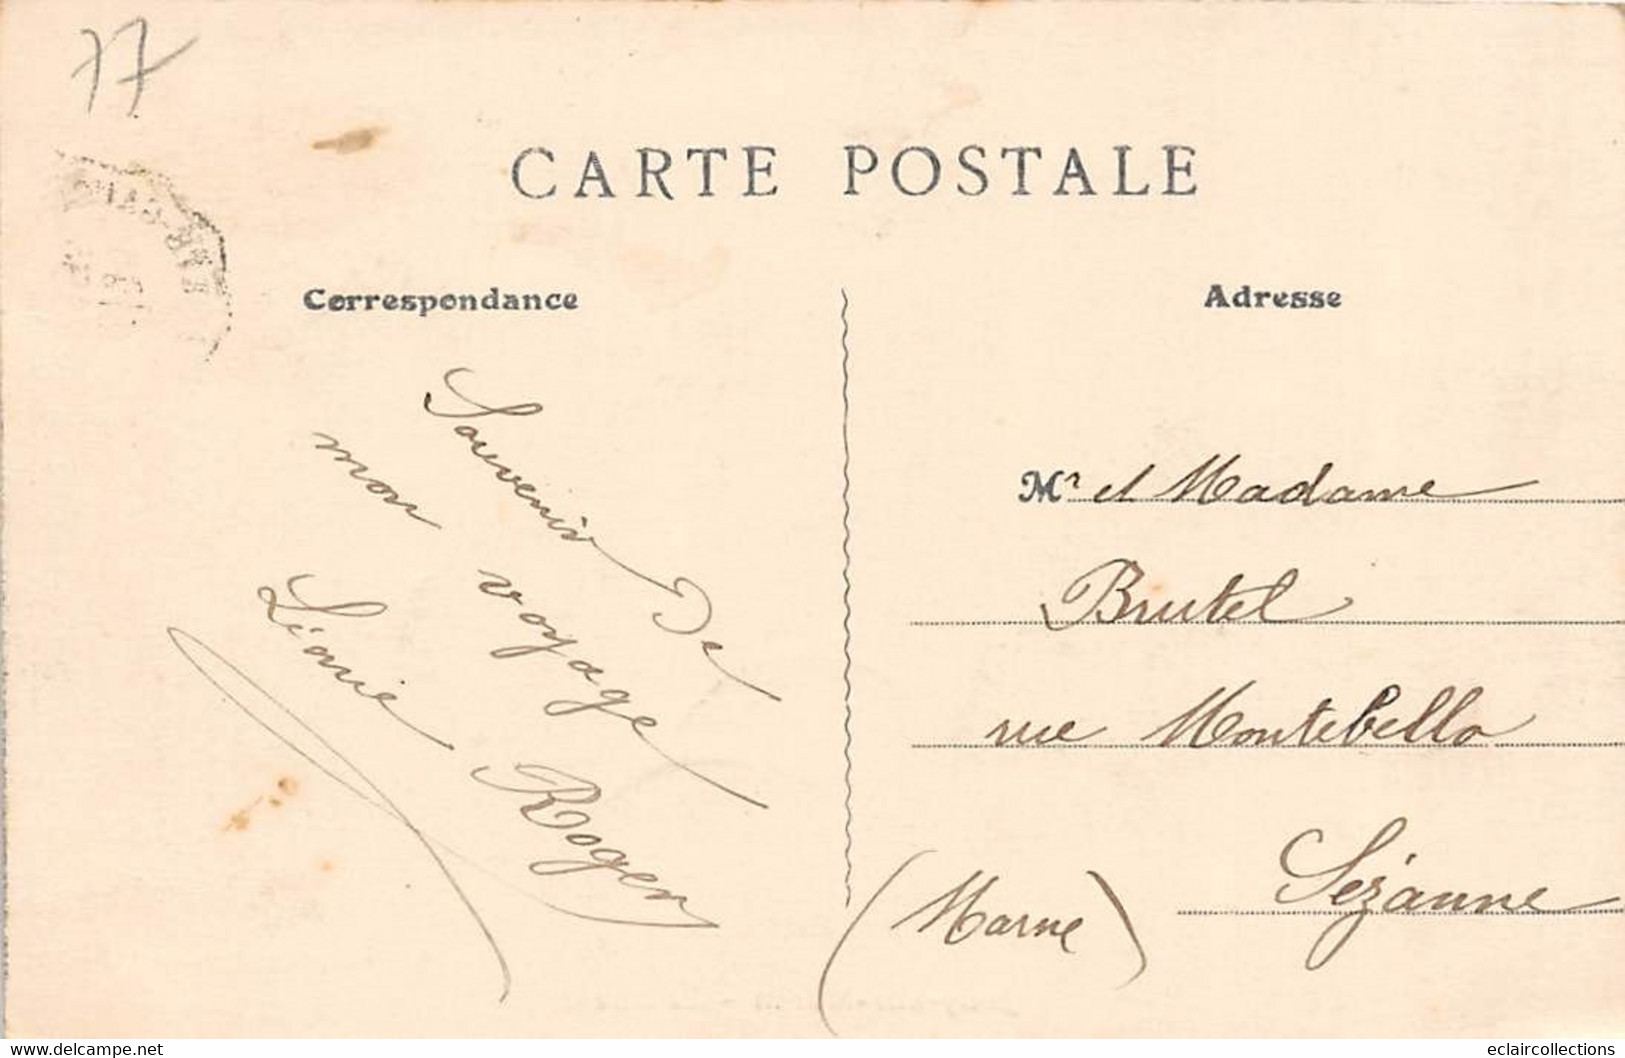 77
CARTE POSTALE
Correspondance
Adresse
Souvenir De
mon voyage
Léonie Roger
Mr et Madame
Brutel
rue Montebello
Sézanne
(Marne)
www.delcampe.net
eclaircollections